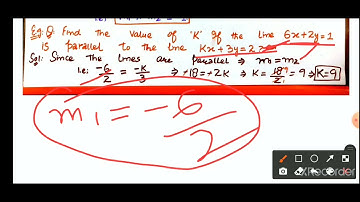 Eg:Q: Find the value of 'K' If the line 6x+2y=1
is parallel to the line Kx+3y=2
Sol: Since the lines are parallel ⇒ m₁=m₂
i.e; -6/2 = -K/3 ⇒ -18=-2K ⇒ K=18/2=9 ⇒ K=9
m₁ = -6/2